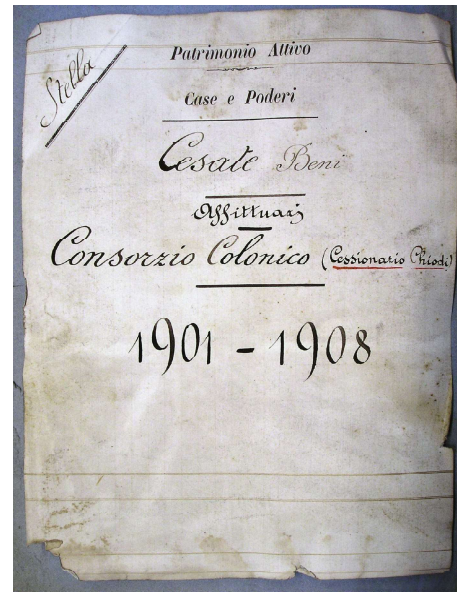 Stella
Patrimonio Attivo
Case e Poderi
Cesate Beni
Affittuarj
Consorzio Colonico (Cessionario Chiodi)
1901 - 1908